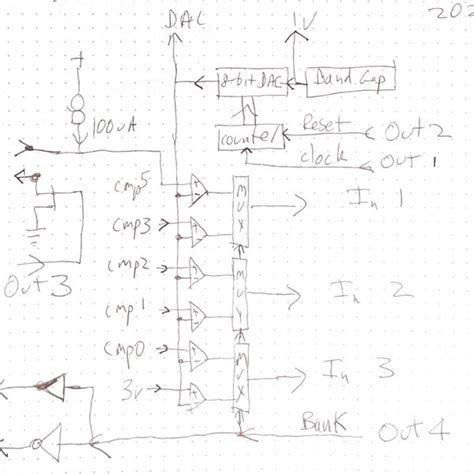 DAC
1V
8-bit DAC
Band Gap
100uA
counter
Reset
Out 2
clock
Out 1
cmp5
MUX
In 1
cmp3
Out 3
cmp2
MUX
In 2
cmp1
cmp0
MUX
In 3
3v
Bank
Out 4